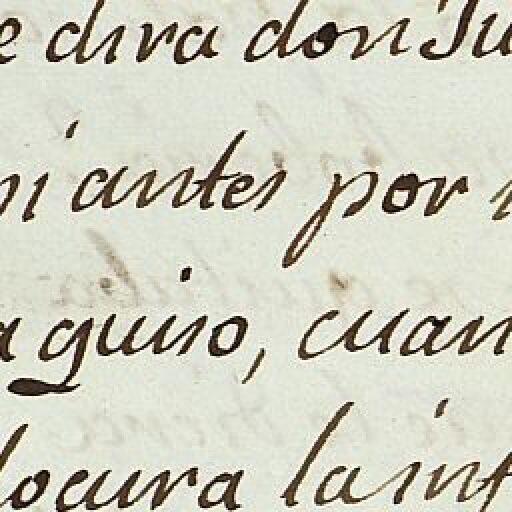 e dira don Ju
ni antes por
a guiso, cuan
locura la inf